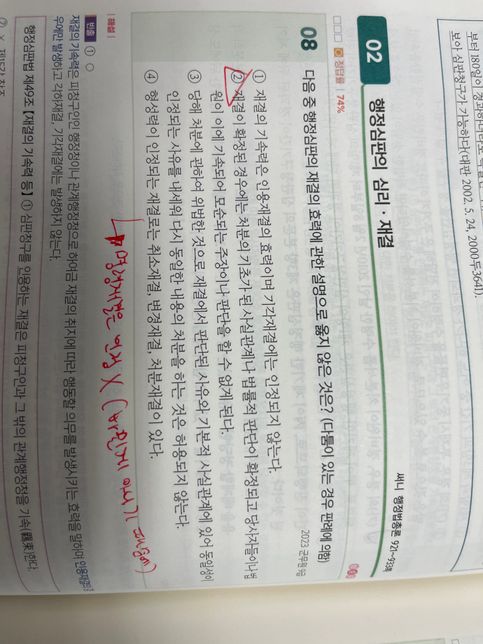 부터 180일이 경과하더라도
보아 심판청구가 가능하다(대판 2002. 5. 24, 2000두3641).
02 행정심판의 심리 · 재결
써니 행정법총론 921~933쪽
정답률 74%
08 다음 중 행정심판의 재결의 효력에 관한 설명으로 옳지 않은 것은? (다툼이 있는 경우 판례에 의함)
2023 군무원 9급
① 재결의 기속력은 인용재결의 효력이며 기각재결에는 인정되지 않는다.
② 재결이 확정된 경우에는 처분의 기초가 된 사실관계나 법률적 판단이 확정되고 당사자들이나 법
원이 이에 기속되어 모순되는 주장이나 판단을 할 수 없게 된다.
③ 당해 처분에 관하여 위법한 것으로 재결에서 판단된 사유와 기본적 사실관계에 있어 동일성이
인정되는 사유를 내세워 다시 동일한 내용의 처분을 하는 것은 허용되지 않는다.
④ 형성력이 인정되는 재결로는 취소재결, 변경재결, 처분재결이 있다.
명령재결은 인정 X
해설
빈출 ① ○
재결의 기속력은 피청구인인 행정청이나 관계행정청으로 하여금 재결의 취지에 따라 행동할 의무를 발생시키는 효력을 말하며 인용재결의
우에만 발생하고 각하재결, 기각재결에는 발생하지 않는다.
행정심판법 제49조【재결의 기속력 등】 ① 심판청구를 인용하는 재결은 피청구인과 그 밖의 관계행정청을 기속(羈束)한다.